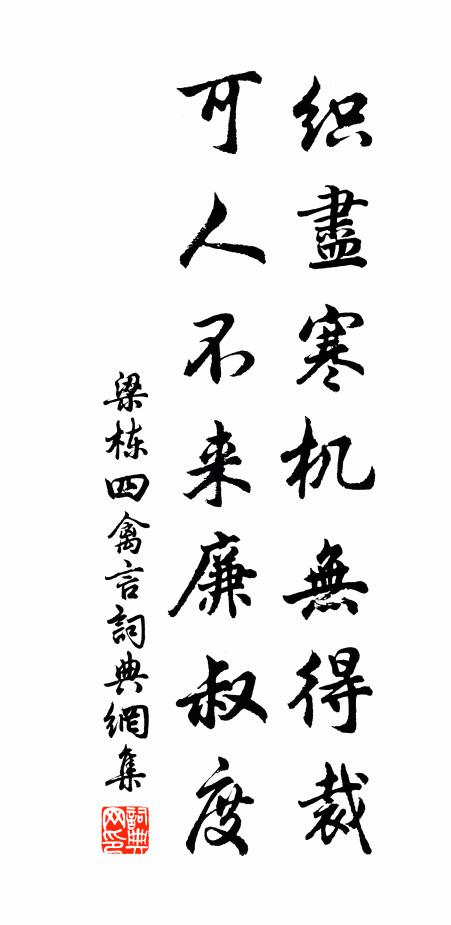 织盡寒机無得裁
可人不来廉叔度
梁栋四禽言詞典網集
詞典网印